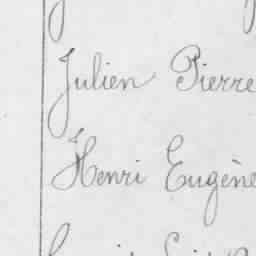 Julien Pierre
Henri Eugène